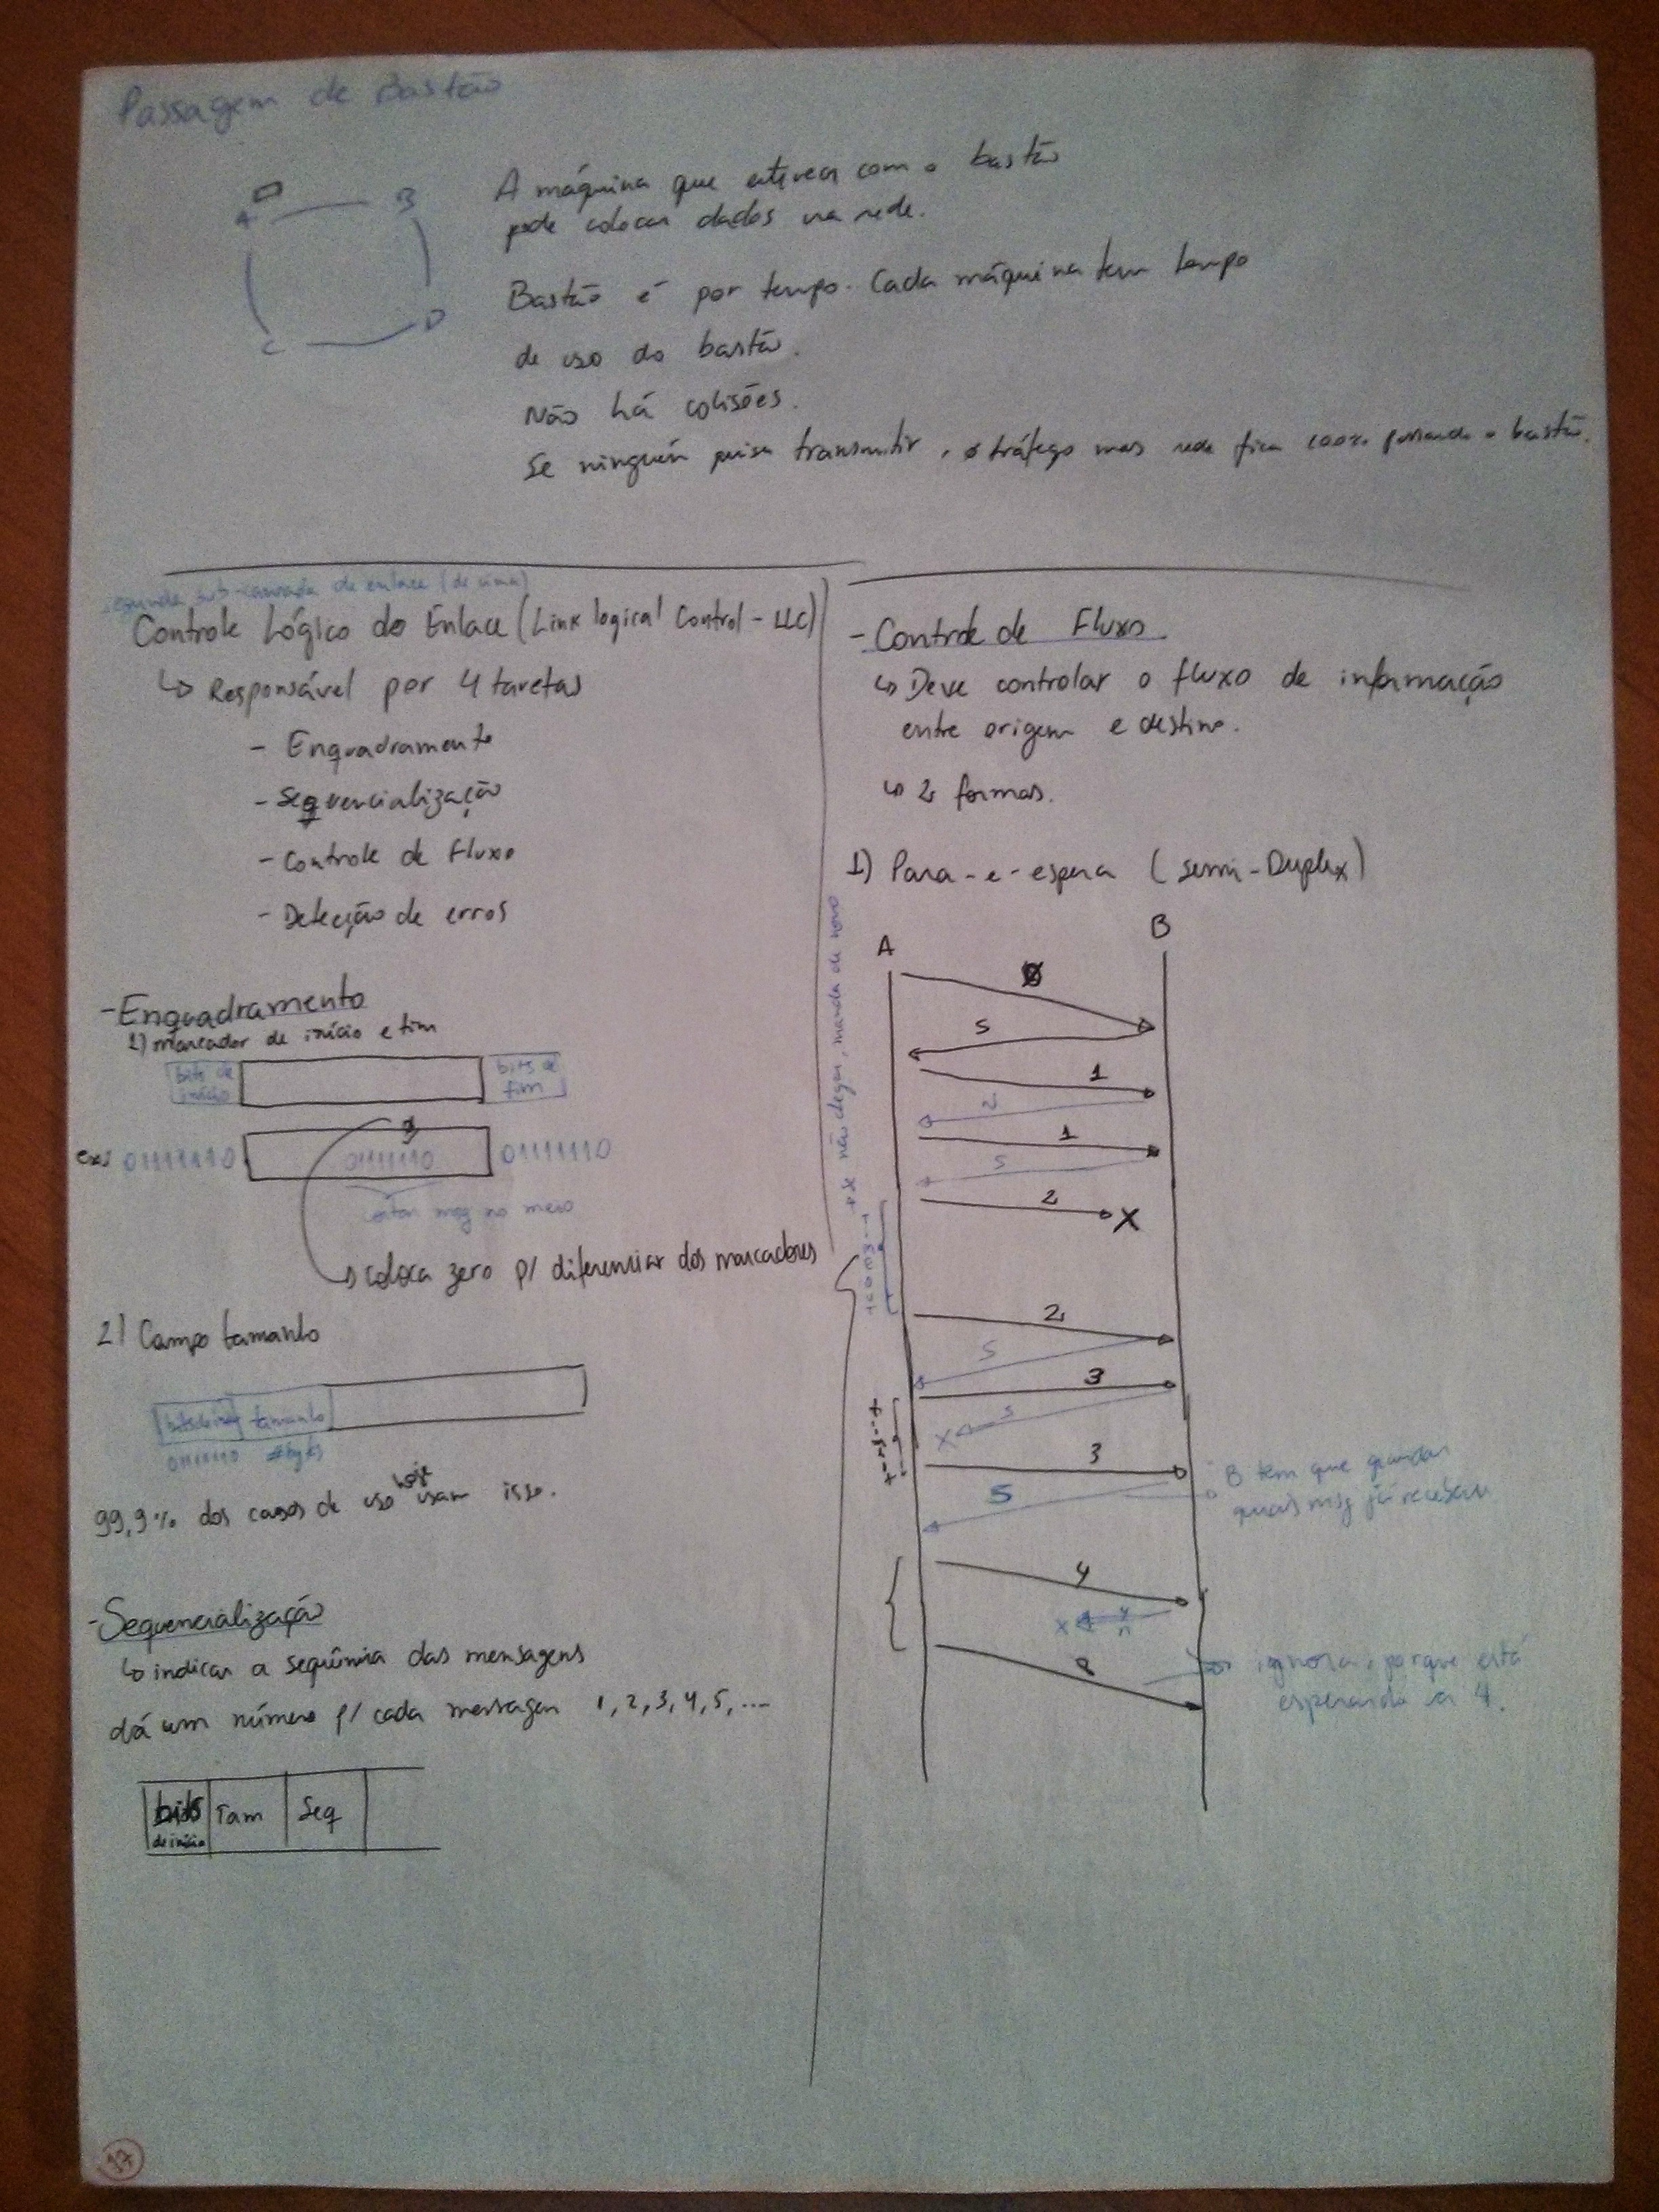 Passagem de Bastão
A B
C D
A máquina que estiver com o bastão
pode colocar dados na rede.
Bastão é por tempo. Cada máquina tem tempo
de uso do bastão.
Não há colisões.
Se ninguém precisa transmitir, o tráfego mas rede fica 100% passando o bastão.
segunda sub-camada de enlace (de cima)
Controle Lógico do Enlace (Link logical Control - LLC)
↳ Responsável por 4 tarefas
- Enquadramento
- Sequencialização
- Controle de Fluxo
- Detecção de erros
- Enquadramento
1) marcador de início e fim
bits de início
bits de fim
01111110 01111110 01111110
msg no meio
↳ coloca zero p/ diferenciar dos marcadores
2) Campo tamanho
tamanho
01111110 #bytes
99,9% dos casos de uso hoje usam isso.
- Sequencialização
↳ indicar a sequência das mensagens
dá um número p/ cada mensagem 1, 2, 3, 4, 5, ...
bits de início Tam Seq
- Controle de Fluxo
↳ Deve controlar o fluxo de informação
entre origem e destino.
↳ 2 formas.
1) Para-e-espera (semi-Duplex)
se não chegar, manda de novo
A B
S
1
1
S
2 X
2
S
3
X S
3
S
B tem que guardar
quais msg já recebeu
4
X
ignora, porque está
esperando a 4.
17